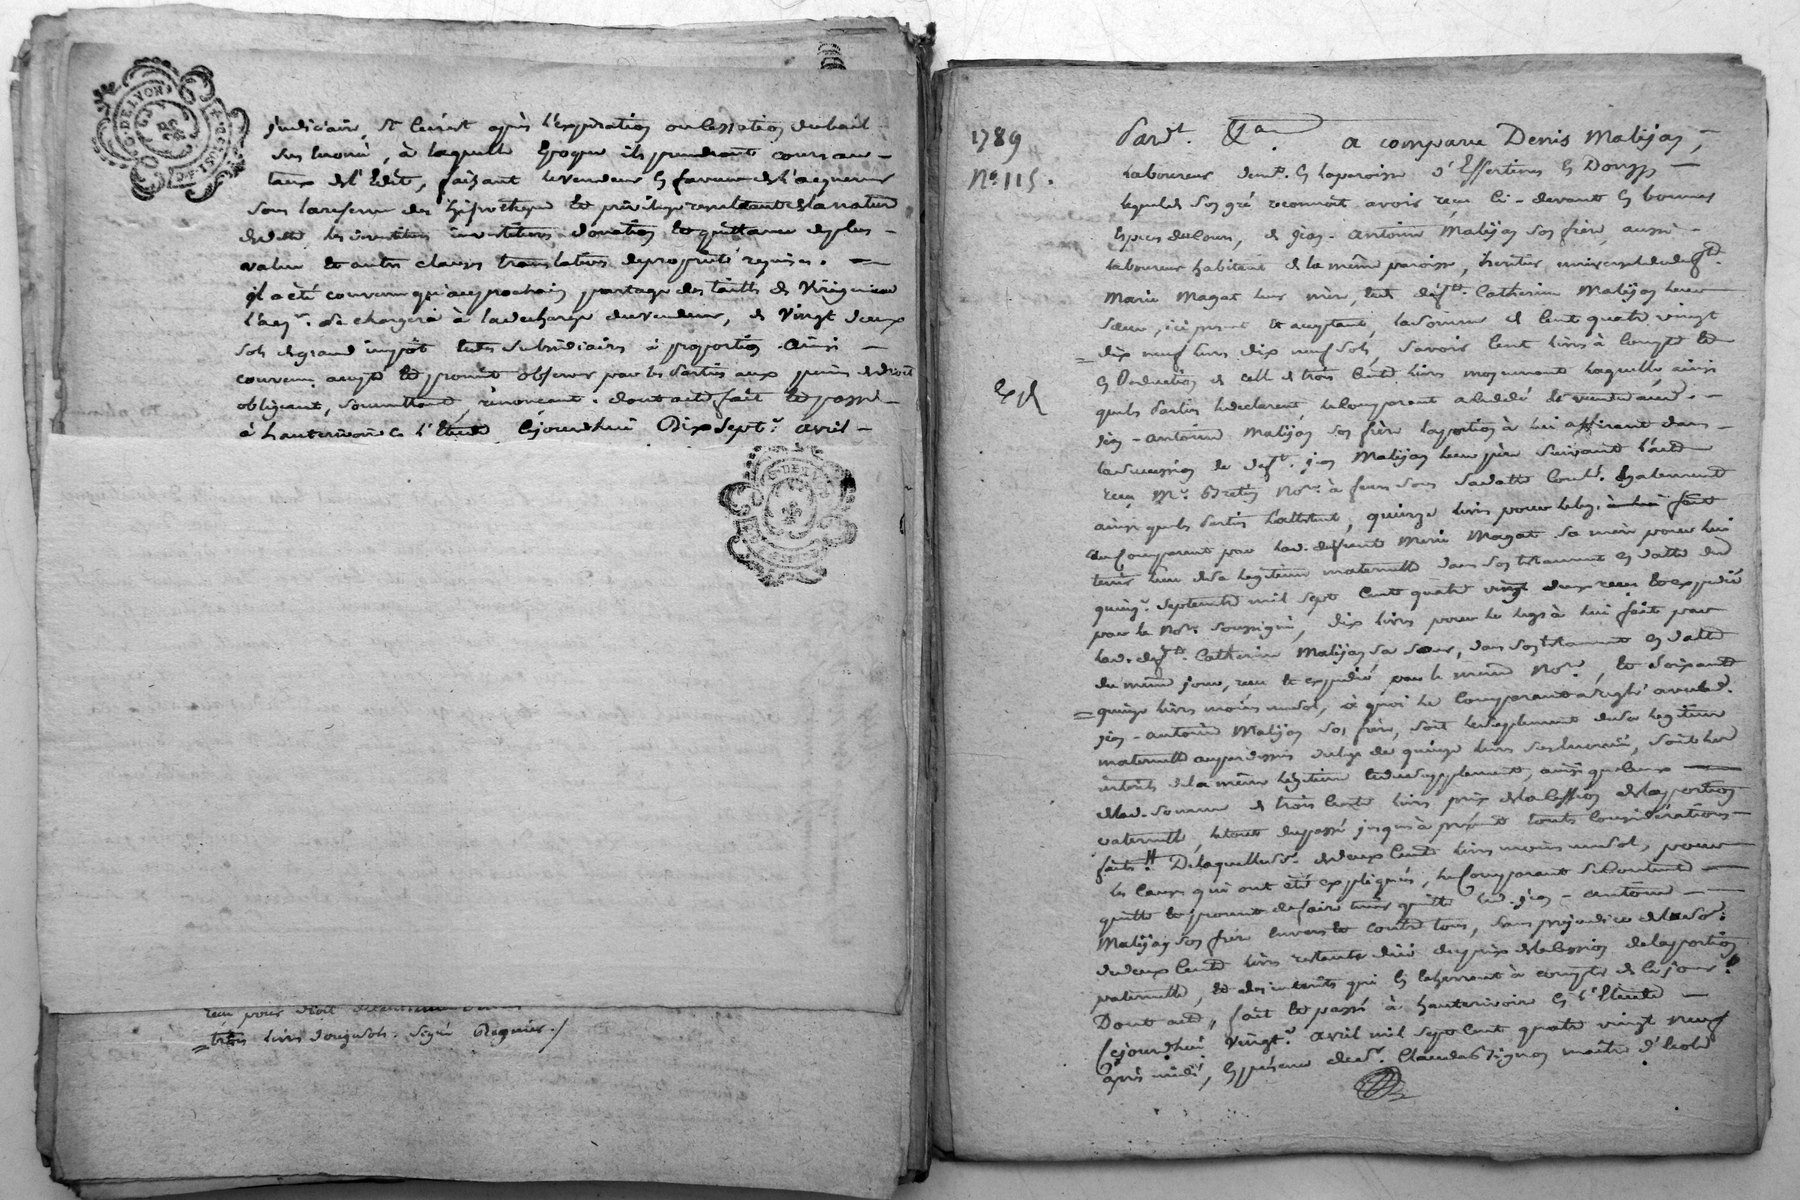 G. DE LYON
judiciaire, et ce après l'expiration ou cessation du bail
sus énoncé, à laquelle époque ils prendront cours au
taux de l'Edit, faisant le vendeur en faveur de l'acquereur
sous la reserve des hipotheque et privilege resultant de la nature
investitures dévestitures donation et quittance de plus
value et autres clauses translatives de proprieté requises.
il a été convenu qu'au prochain partage des tailles de
l'aqr. se chargera à la decharge du vendeur, de vingt deux
sols de grand impôt et des subsidiaires à proportion. Ainsi
convenu accepté et promis observer par les parties aux peines de droit
obligeant, soumettant, renonçant. dont acte fait et passé
à hauterivoire en l'Etude cejourd'hui dix septe. avril
reçu pour droit
trois livres douze sols. signé
1789
No. 115.
Pardt. a comparu Denis Malijay,
laboureur demt. en la paroisse d'Essertines en Donzy
lequel de son gré reconnoit avoir reçu ci-devant en bonnes
especes de cours, de jean-antoine Malijay son frère, aussi
laboureur habitant de la même paroisse, heritier universel de defte.
Marie Magat leur mère, et de defte. Catherine Malijay leur
sœur, ici present et acceptant, la somme de cent quatre vingt
dix neuf livres dix neuf sols, savoir cent livres à compte et
en deduction de celle de trois cents livres moyennant laquelle, ainsi
que les parties le declarent, le comparant a cédé et vendu aud.
jean-antoine Malijay son frère la portion à lui afférente dans
la succession de deft. jean Malijay leur père suivant l'acte
reçu Me. Nore. à feurs sous sa datte Contlé. egalement
ainsi que les parties l'attestent, quinze livres pour le legs à lui fait
au comparant par lad. deffunte Marie Magat sa mère pour lui
tenir lieu de sa legitime maternelle dans son testament en datte du
quinze septembre mil sept cent quatre vingt deux reçu et expedié
par le Nore. soussigné, dix livres pour le legs à lui fait par
lad. defte. Catherine Malijay sa sœur, dans son testament en datte
du même jour, reçu et expedié par le même Nore, et soixante
quinze livres moins un sol, à quoi le comparant a reglé avec led.
jean-antoine Malijay son frère, soit le suplement de sa legitime
maternelle au par dessus du legs de quinze livres sus énoncé, soit les
interets de la même legitime et du supplement, ainsi que ceux
de lad. somme de trois cents livres prix de la cession de la portion
paternelle, le tout du passé jusqu'à présent toutes considérations
faites. De laquelle se. de deux cents livres moins un sol, pour
les causes qui ont été expliquées, le comparant se contente
quitte et promet de faire tenir quitte led. jean-antoine
Malijay son frère envers et contre tous, sans prejudice de la se.
de deux cents livres restante düe du prix de la cession de la portion
paternelle, et des interêts qui en echerront à compter de ce jour.
Dont acte, fait et passé à hauterivoire en l'Etude
cejourd'hui vingte. avril mil sept cent quatre vingt neuf
après midi, en présence de sr. Claude maître d'école